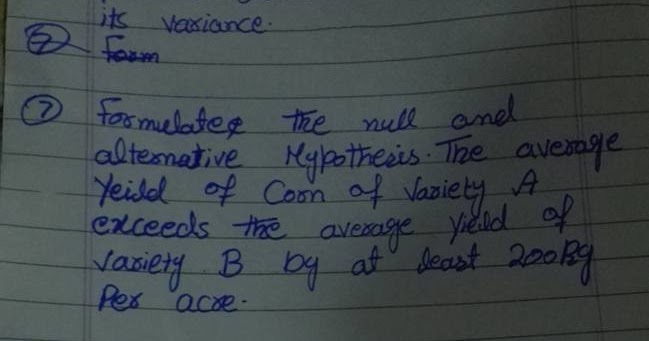 its variance.
② Form
⑦ Formulates the null and
alternative Hypothesis. The average
Yeild of Corn of Variety A
exceeds the average yield of
variety B by at least 200Kg
Per acre.